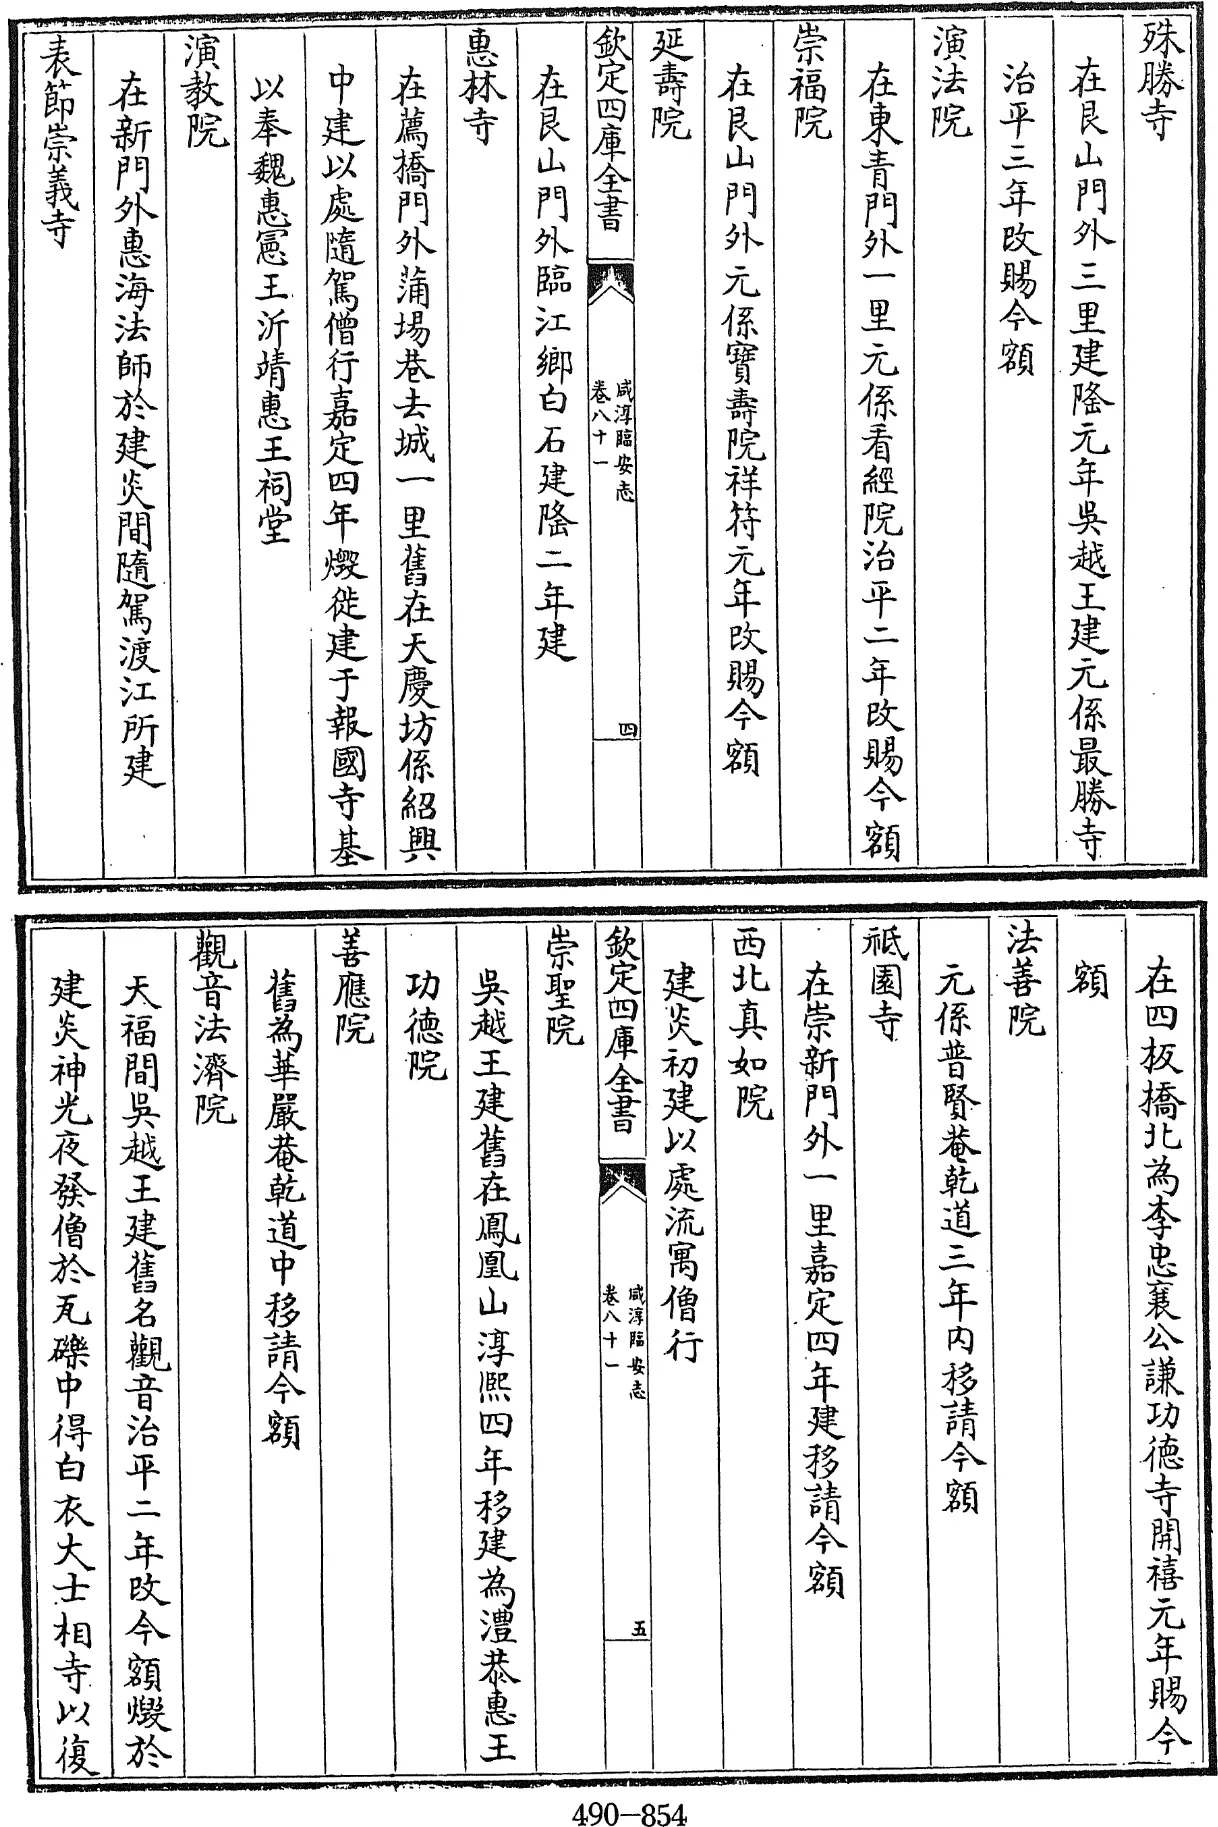 殊勝寺
在艮山門外三里建隆元年吳越王建元係最勝寺
治平三年改賜今額
演法院
在東青門外一里元係看經院治平二年改賜今額
崇福院
在艮山門外元係寶壽院祥符元年改賜今額
延壽院
欽定四庫全書
咸淳臨安志
卷八十一
四
在艮山門外臨江鄉白石建隆二年建
惠林寺
在薦橋門外蒲場巷去城一里舊在天慶坊係紹興
中建以處隨駕僧行嘉定四年燬徙建于報國寺基
以奉魏惠憲王沂靖惠王祠堂
演教院
在新門外惠海法師於建炎間隨駕渡江所建
表節崇義寺
在四板橋北為李忠襄公謙功德寺開禧元年賜今
額
法善院
元係普賢菴乾道三年內移請今額
祗園寺
在崇新門外一里嘉定四年建移請今額
西北真如院
建炎初建以處流寓僧行
欽定四庫全書
咸淳臨安志
卷八十一
五
崇聖院
吳越王建舊在鳳凰山淳熙四年移建為澧恭惠王
功德院
善應院
舊為華嚴菴乾道中移請今額
觀音法濟院
天福間吳越王建舊名觀音治平二年改今額燬於
建炎神光夜發僧於瓦礫中得白衣大士相寺以復
490-854